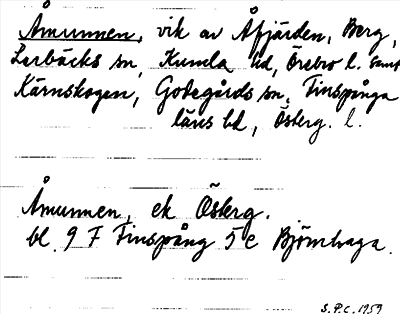 Åmunnen, vik av Åfjärden, Berg,
Lerbäcks sn, Kumla hd, Örebro l. samt
Kärnskogen, Godegårds sn, Finspånga
läns hd, Österg. l.
Åmunnen, ek Österg.
bl. 9 F Finspång 5 e Björnhaga.
S.P.C. 1959